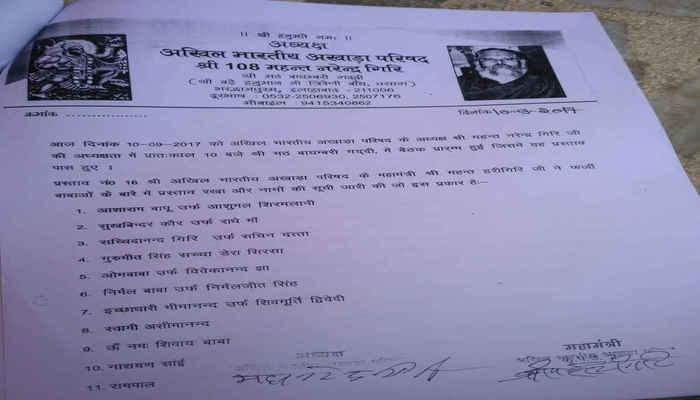 ।। श्री हनुमते नमः ।।
अध्यक्ष
अखिल भारतीय अखाड़ा परिषद
श्री 108 महन्त नरेन्द्र गिरि
श्री मठ बाघम्बरी गद्दी
(श्री बड़े हनुमान जी त्रिवेणी बाँध, प्रयाग)
भरद्वाजपुरम्, इलाहाबाद - 211006
दूरभाष : 0532-2506930, 2507176
मोबाईल 9415340662
क्रमांक
दिनांक 10-9-2017
आज दिनांक 10-09-2017 को अखिल भारतीय अखाड़ा परिषद के अध्यक्ष श्री महन्त नरेन्द्र गिरि जी
की अध्यक्षता में प्रातःकाल 10 बजे श्री मठ बाघम्बरी गद्दी, में बैठक प्रारम्भ हुई जिसमें यह प्रस्ताव
पास हुए ।
प्रस्ताव नं0 16 श्री अखिल भारतीय अखाड़ा परिषद के महामंत्री श्री महन्त हरीगिरि जी ने फर्जी
बाबाओं के बारे में प्रस्ताव रखा और नामों की सूची जारी की जो इस प्रकार है:-
1. आशाराम बापू उर्फ आशुमल शिरमलानी
2. सुखबिन्दर कौर उर्फ राधे माँ
3. सच्चिदानन्द गिरि उर्फ सचिन दत्ता
4. गुरुमीत सिंह सच्चा डेरा सिरसा
5. ओमबाबा उर्फ विवेकानन्द झा
6. निर्मल बाबा उर्फ निर्मलजीत सिंह
7. इच्छाधारी भीमानन्द उर्फ शिवमूर्ति द्विवेदी
8. स्वामी असीमानन्द
9. ऊँ नमः शिवाय बाबा
10. नारायण साईं
11. रामपाल
अध्यक्ष
महामंत्री